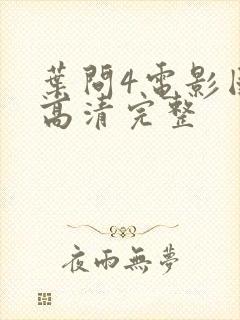 葉問4電影
高清完整
夜雨無夢